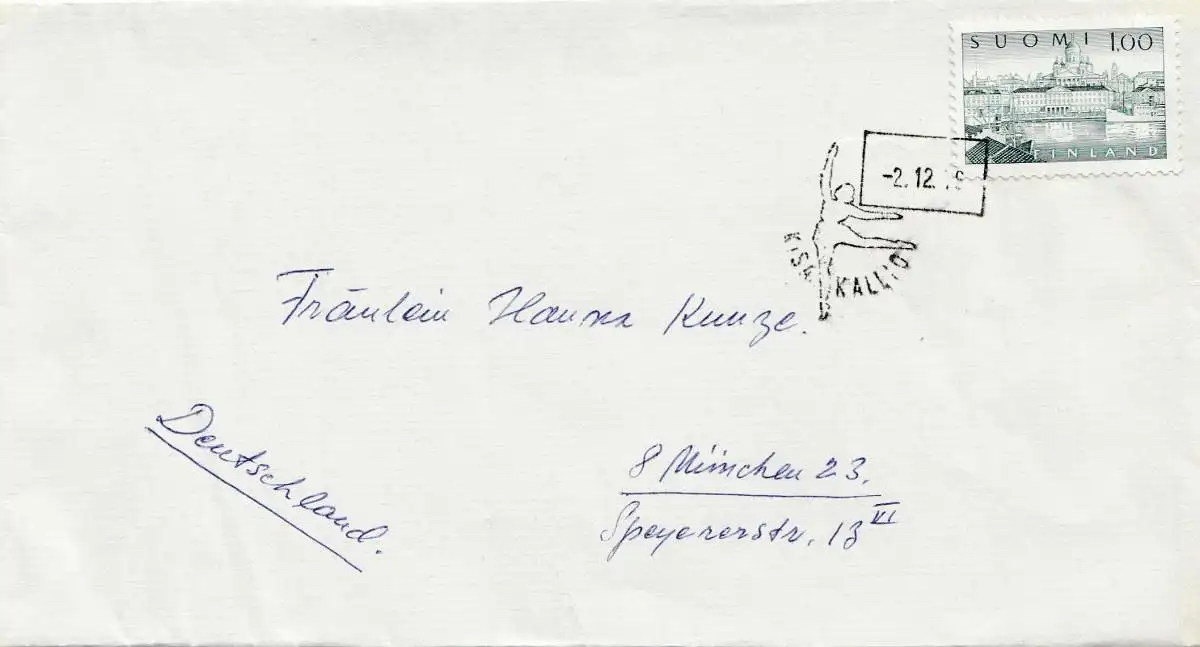 SUOMI 1.00
FINLAND
-2.12.
KISAKALLIO
Fräulein Hanna Kunze.
Deutschland.
8 München 23.
Speyererstr. 13 VI